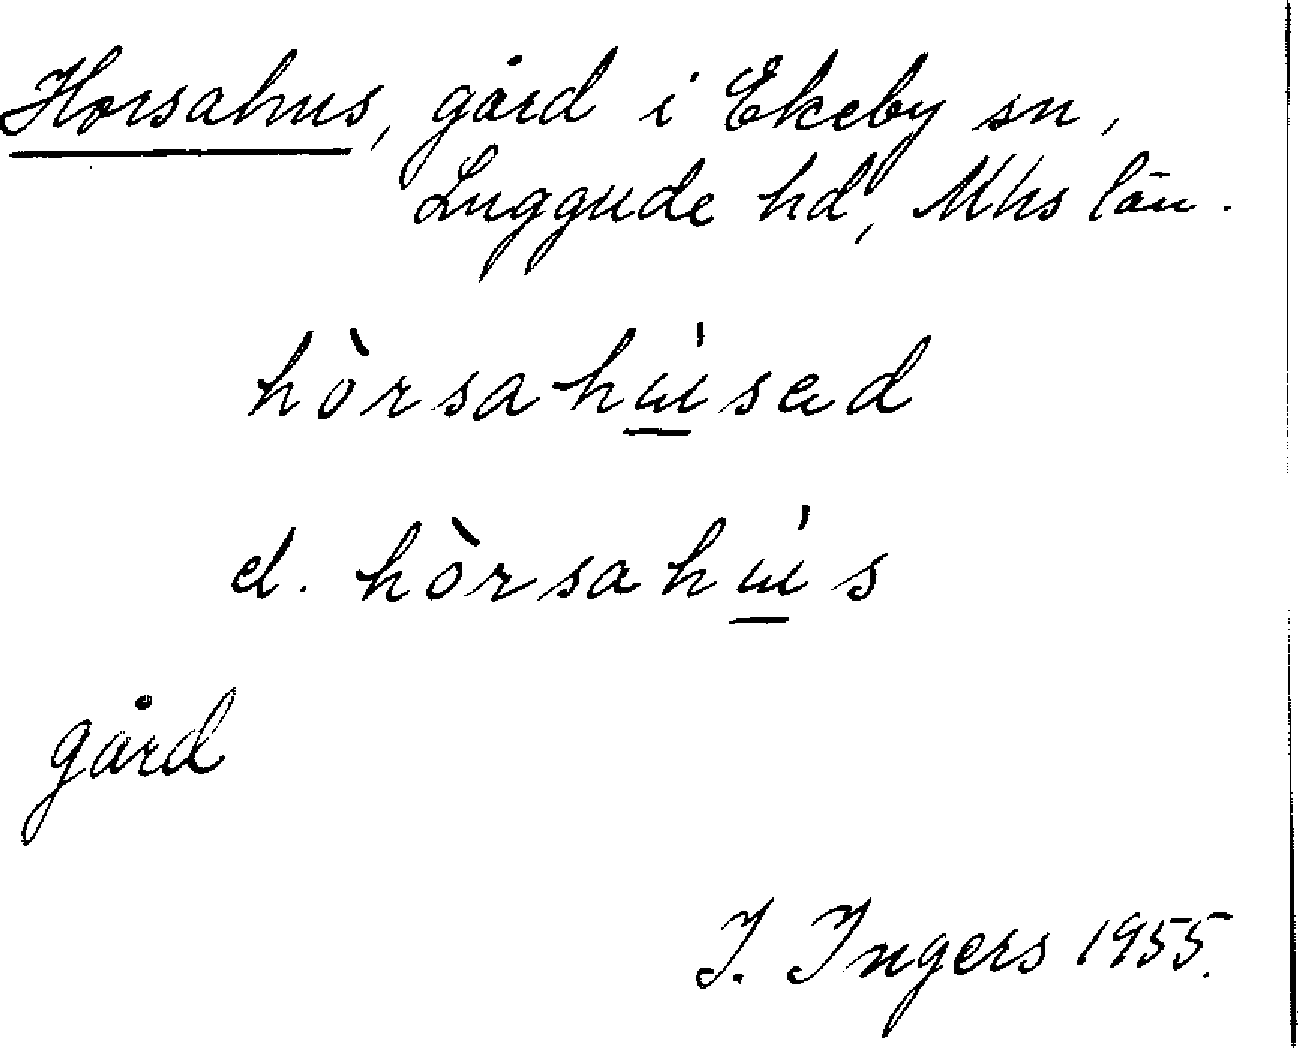 Horsahus, gård i Ekeby sn,
Luggude hd, Mhs län.
hòrsahúsad
el. hòrsahús
gård
I. Ingers 1955.